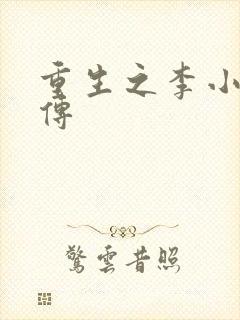 重生之李小
傳
驚雲昔照